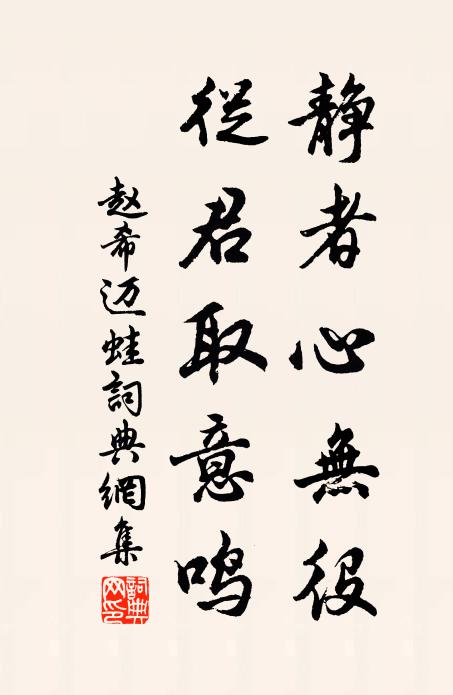 静者心無役
從君取意鸣
赵希迈蛙詞典網集
詞典網印